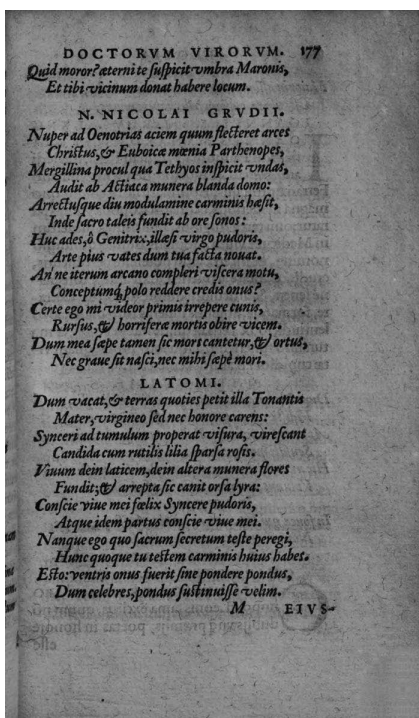 DOCTORVM VIRORVM. 177
Quid moror? æterni te suspicit vmbra Maronis,
Et tibi vicinum donat habere locum.
N. NICOLAI GRVDII.
Nuper ad Oenotrias aciem quum flecteret arces
Christus, & Euboicæ mœnia Parthenopes,
Mergillina procul qua Tethyos inspicit vndas,
Audit ab Actiaca munera blanda domo:
Arrectusque diu modulamine carminis hæsit,
Inde sacro taleis fundit ab ore sonos:
Huc ades, ô Genitrix, illæsi virgo pudoris,
Arte pius vates dum tua facta nouat.
An ne iterum arcano compleri viscera motu,
Conceptumq́; polo reddere credis onus?
Certe ego mi videor primis irrepere cunis,
Rursus, & horriferæ mortis obire vicem.
Dum mea sæpe tamen sic mors cantetur, & ortus,
Nec graue sit nasci, nec mihi sæpè mori.
LATOMI.
Dum vacat, & terras quoties petit illa Tonantis
Mater, virgineo sed nec honore carens:
Synceri ad tumulum properat visura, virescant
Candida cum rutilis lilia sparsa rosis.
Viuum dein laticem, dein altera munera flores
Fundit; & arrepta sic canit orsa lyra:
Conscie viue mei fœlix Syncere pudoris,
Atque idem partus conscie viue mei.
Nanque ego quo sacrum secretum teste peregi,
Hunc quoque tu testem carminis huius habes.
Esto: ventris onus fuerit sine pondere pondus,
Dum celebres, pondus sustinuisse velim.
M EIVS-